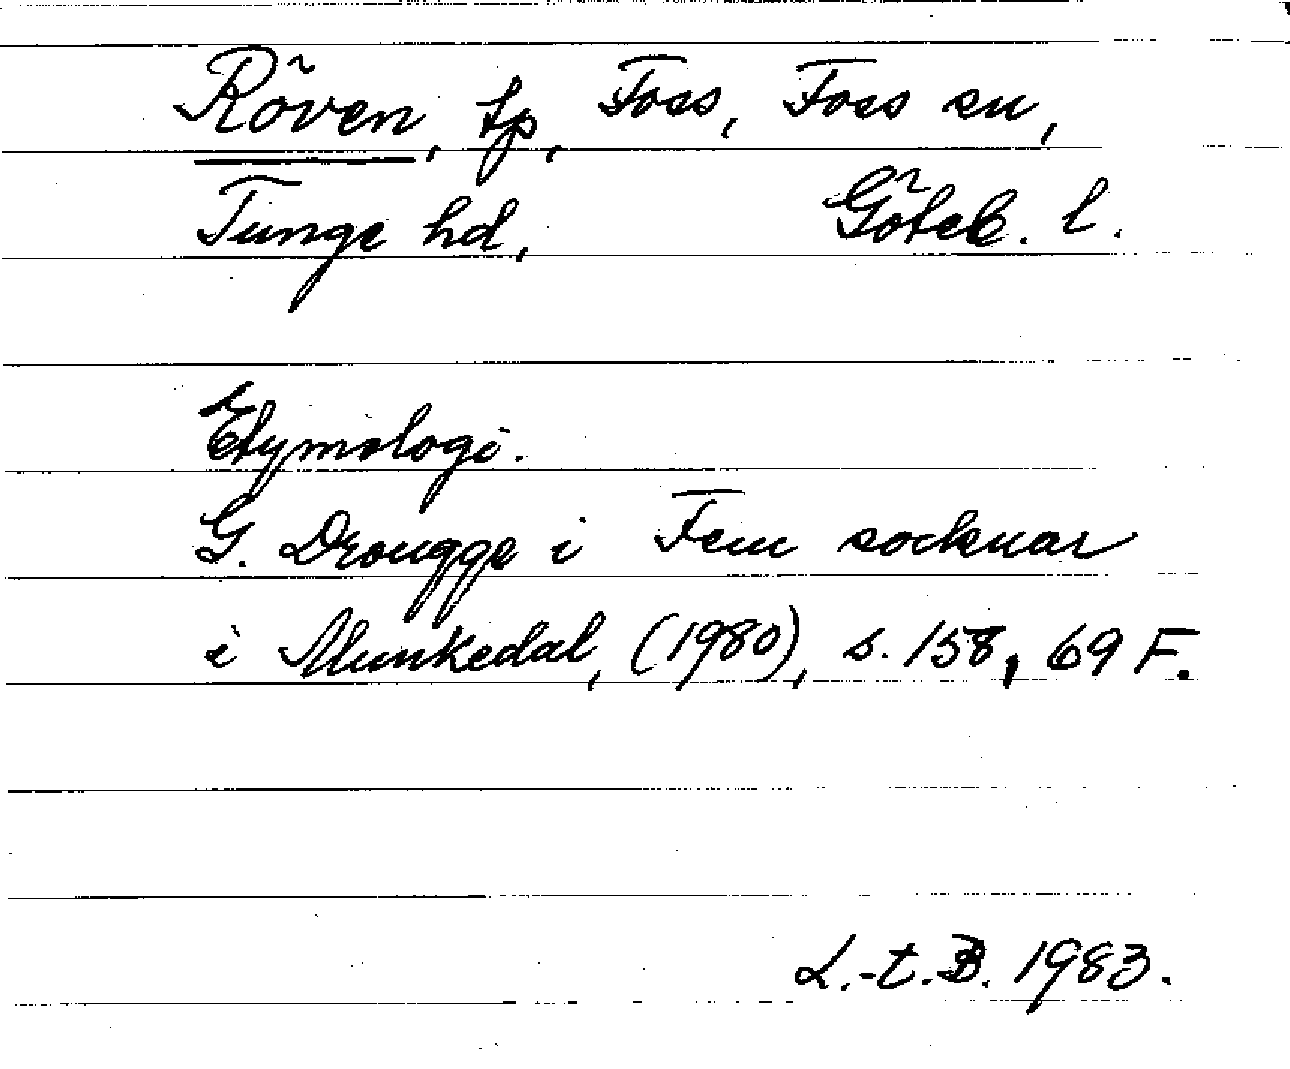 Röven, tp, Foss, Foss sn,
Tunge hd, Göteb. l.
Etymologi.
G. Drougge i Fem socknar
i Munkedal, (1980), s. 158, 69 F.
L.-t. B. 1983.